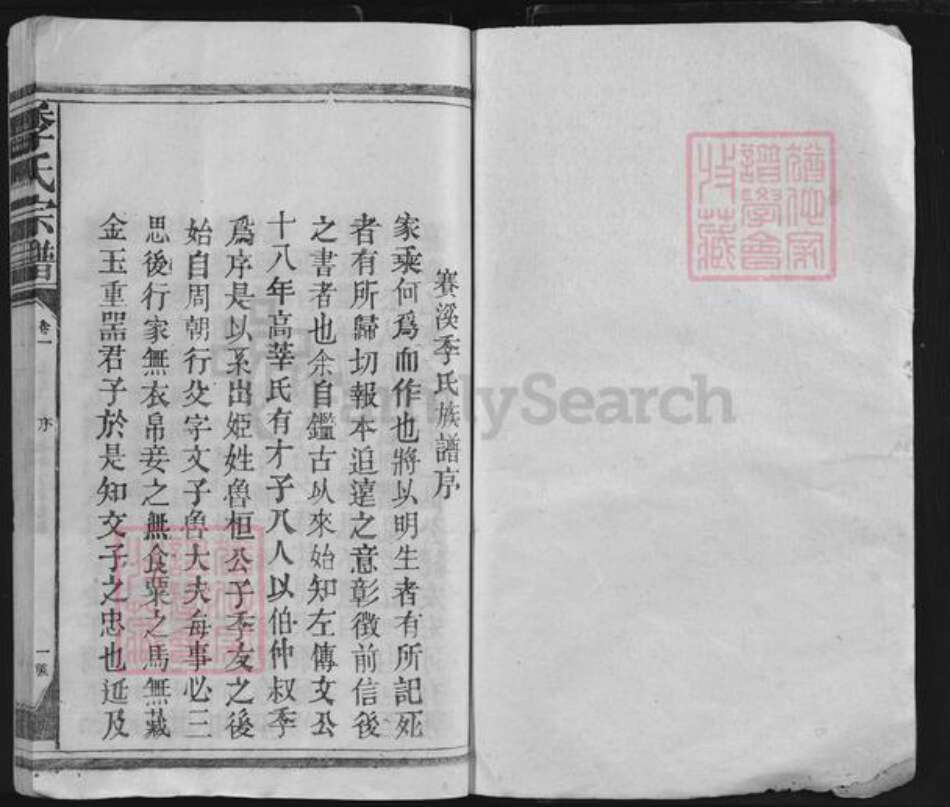 賽溪季氏族譜序
家乘何爲而作也將以明生者有所記死
者有所歸切報本追遠之意彰徵前信後
之書者也余自鑑古以來始知左傳文公
十八年高莘氏有才子八人以伯仲叔季
爲序是以系出姬姓魯桓公子季友之後
始自周朝行父字文子魯大夫每事必三
思後行家無衣帛妾之無食粟之馬無藏
金玉重噐君子於是知文子之忠也延及
季氏宗譜
卷一
序
一
FamilySearch
譜學會
收藏